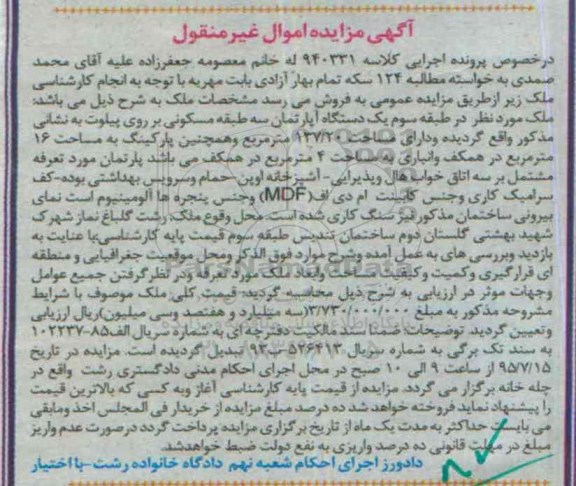 آگهی مزایده اموال غیر منقول
درخصوص پرونده اجرایی کلاسه ۹۴۰۳۳۱ له خانم معصومه جعفرزاده علیه آقای محمد
صمدی به خواسته مطالبه ۱۲۴ سکه تمام بهار آزادی بابت مهریه با توجه به انجام کارشناسی
ملک زیر ازطریق مزایده عمومی به فروش می رسد مشخصات ملک به شرح ذیل می باشد:
ملک مورد نظر در طبقه سوم یک دستگاه آپارتمان سه طبقه مسکونی بر روی پیلوت به نشانی
مذکور واقع گردیده ودارای مساحت ۱۳۷/۲۰ مترمربع وهمچنین پارکینگ به مساحت ۱۶
مترمربع در همکف وانباری به مساحت ۴ مترمربع در همکف می باشد پارتمان مورد تعرفه
مشتمل بر سه اتاق خواب هال وپذیرایی- آشپزخانه اوپن- حمام وسرویس بهداشتی بوده-کف
سرامیک کاری وجنس کابینت ام دی اف(MDF) وجنس پنجره ها آلومینیوم است نمای
بیرونی ساختمان مذکور نیز سنگ کاری شده است. محل وقوع ملک: رشت گلباغ نماز شهرک
شهید بهشتی گلستان دوم ساختمان تندیس طبقه سوم قیمت پایه کارشناسی:با عنایت به
بازدید وبررسی های به عمل آمده وشرح موارد فوق الذکر ومحل موقعیت جغرافیایی و منطقه
ای قرارگیری وکمیت وکیفیت ساخت وابعاد ملک مورد تعرفه ودر نظرگرفتن جمیع عوامل
وجهات موثر در ارزیابی به شرح ذیل محاسبه گردید: قیمت کلی ملک موصوف با شرایط
مشروحه مذکور به مبلغ ۳/۷۳۰/۰۰۰/۰۰۰(سه میلیارد و هفتصد وسی میلیون)ریال ارزیابی
وتعیین گردید. توضیحات: ضمنا سند مالکیت دفترچه ای به شماره سریال الف۸۵-۱۰۲۲۳۷
به سند تک برگی به شماره سریال ۵۲۶۴۱۳-ب۹۳ تبدیل گردیده است. مزایده در تاریخ
۹۵/۷/۱۵ از ساعت ۹ الی ۱۰ صبح در محل اجرای احکام مدنی دادگستری رشت واقع در
جله خانه برگزار می گردد. مزایده از قیمت پایه کارشناسی آغاز وبه کسی که بالاترین قیمت
را پیشنهاد نماید فروخته خواهد شد ده درصد مبلغ مزایده از خریدار فی المجلس اخذ ومابقی
می بایست حداکثر به مدت یک ماه از تاریخ برگزاری مزایده پرداخت گردد درصورت عدم واریز
مبلغ در مهلت قانونی ده درصد واریزی به نفع دولت ضبط خواهدشد.
دادورز اجرای احکام شعبه نهم دادگاه خانواده رشت -بااختیار